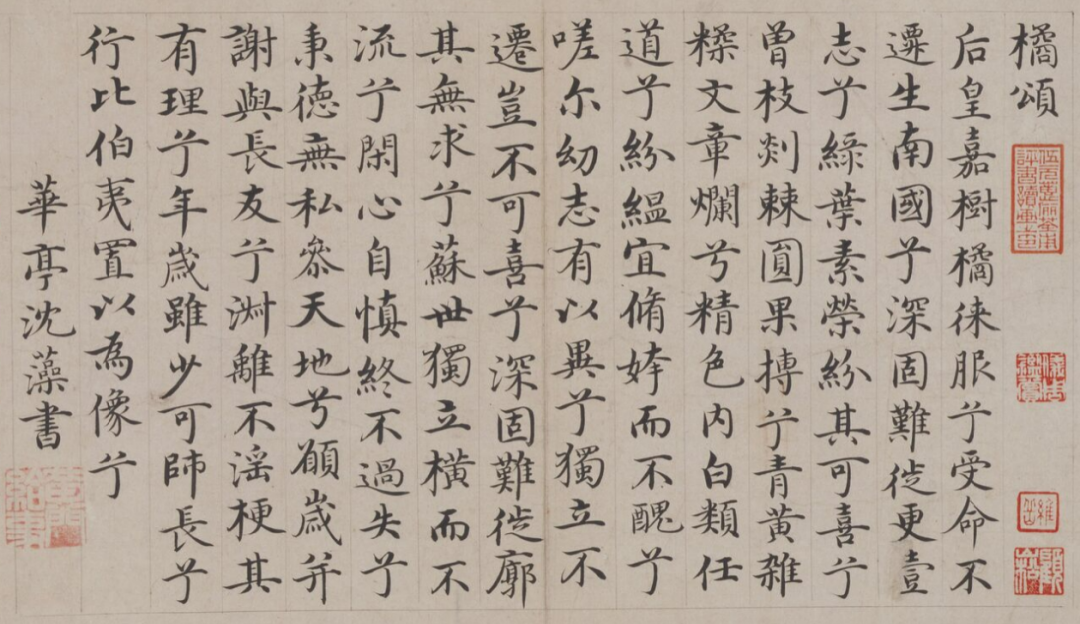 橘頌
后皇嘉樹橘徕服兮受命不
遷生南國兮深固難徙更壹
志兮綠葉素榮紛其可喜兮
曾枝剡棘圓果摶兮青黃雜
糅文章爛兮精色内白類任
道兮紛緼宜脩姱而不醜兮
嗟尔幼志有以異兮獨立不
遷豈不可喜兮深固難徙廓
其無求兮蘇世獨立橫而不
流兮閑心自慎終不過失兮
秉德無私參天地兮願歲并
謝與長友兮淑離不淫梗其
有理兮年歲雖少可師長兮
行比伯夷置以為像兮
華亭沈藻書